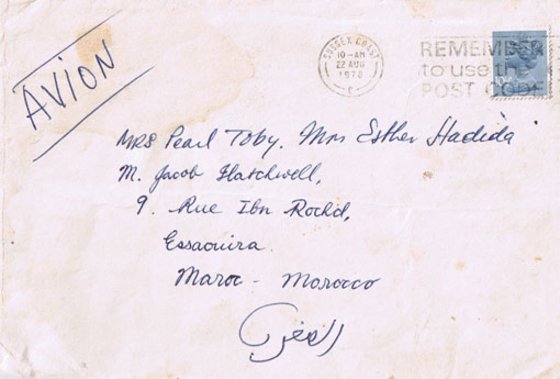 AVION
SUSSEX COAST
10-AM
22 AUG
1978
C
REMEMBER
to use the
POST CODE
MRS Pearl Toby. Mrs Esther Hadida
M. Jacob Hatchwell,
9. Rue Ibn Rochd,
Essaouira
Maroc - Morocco
المغرب